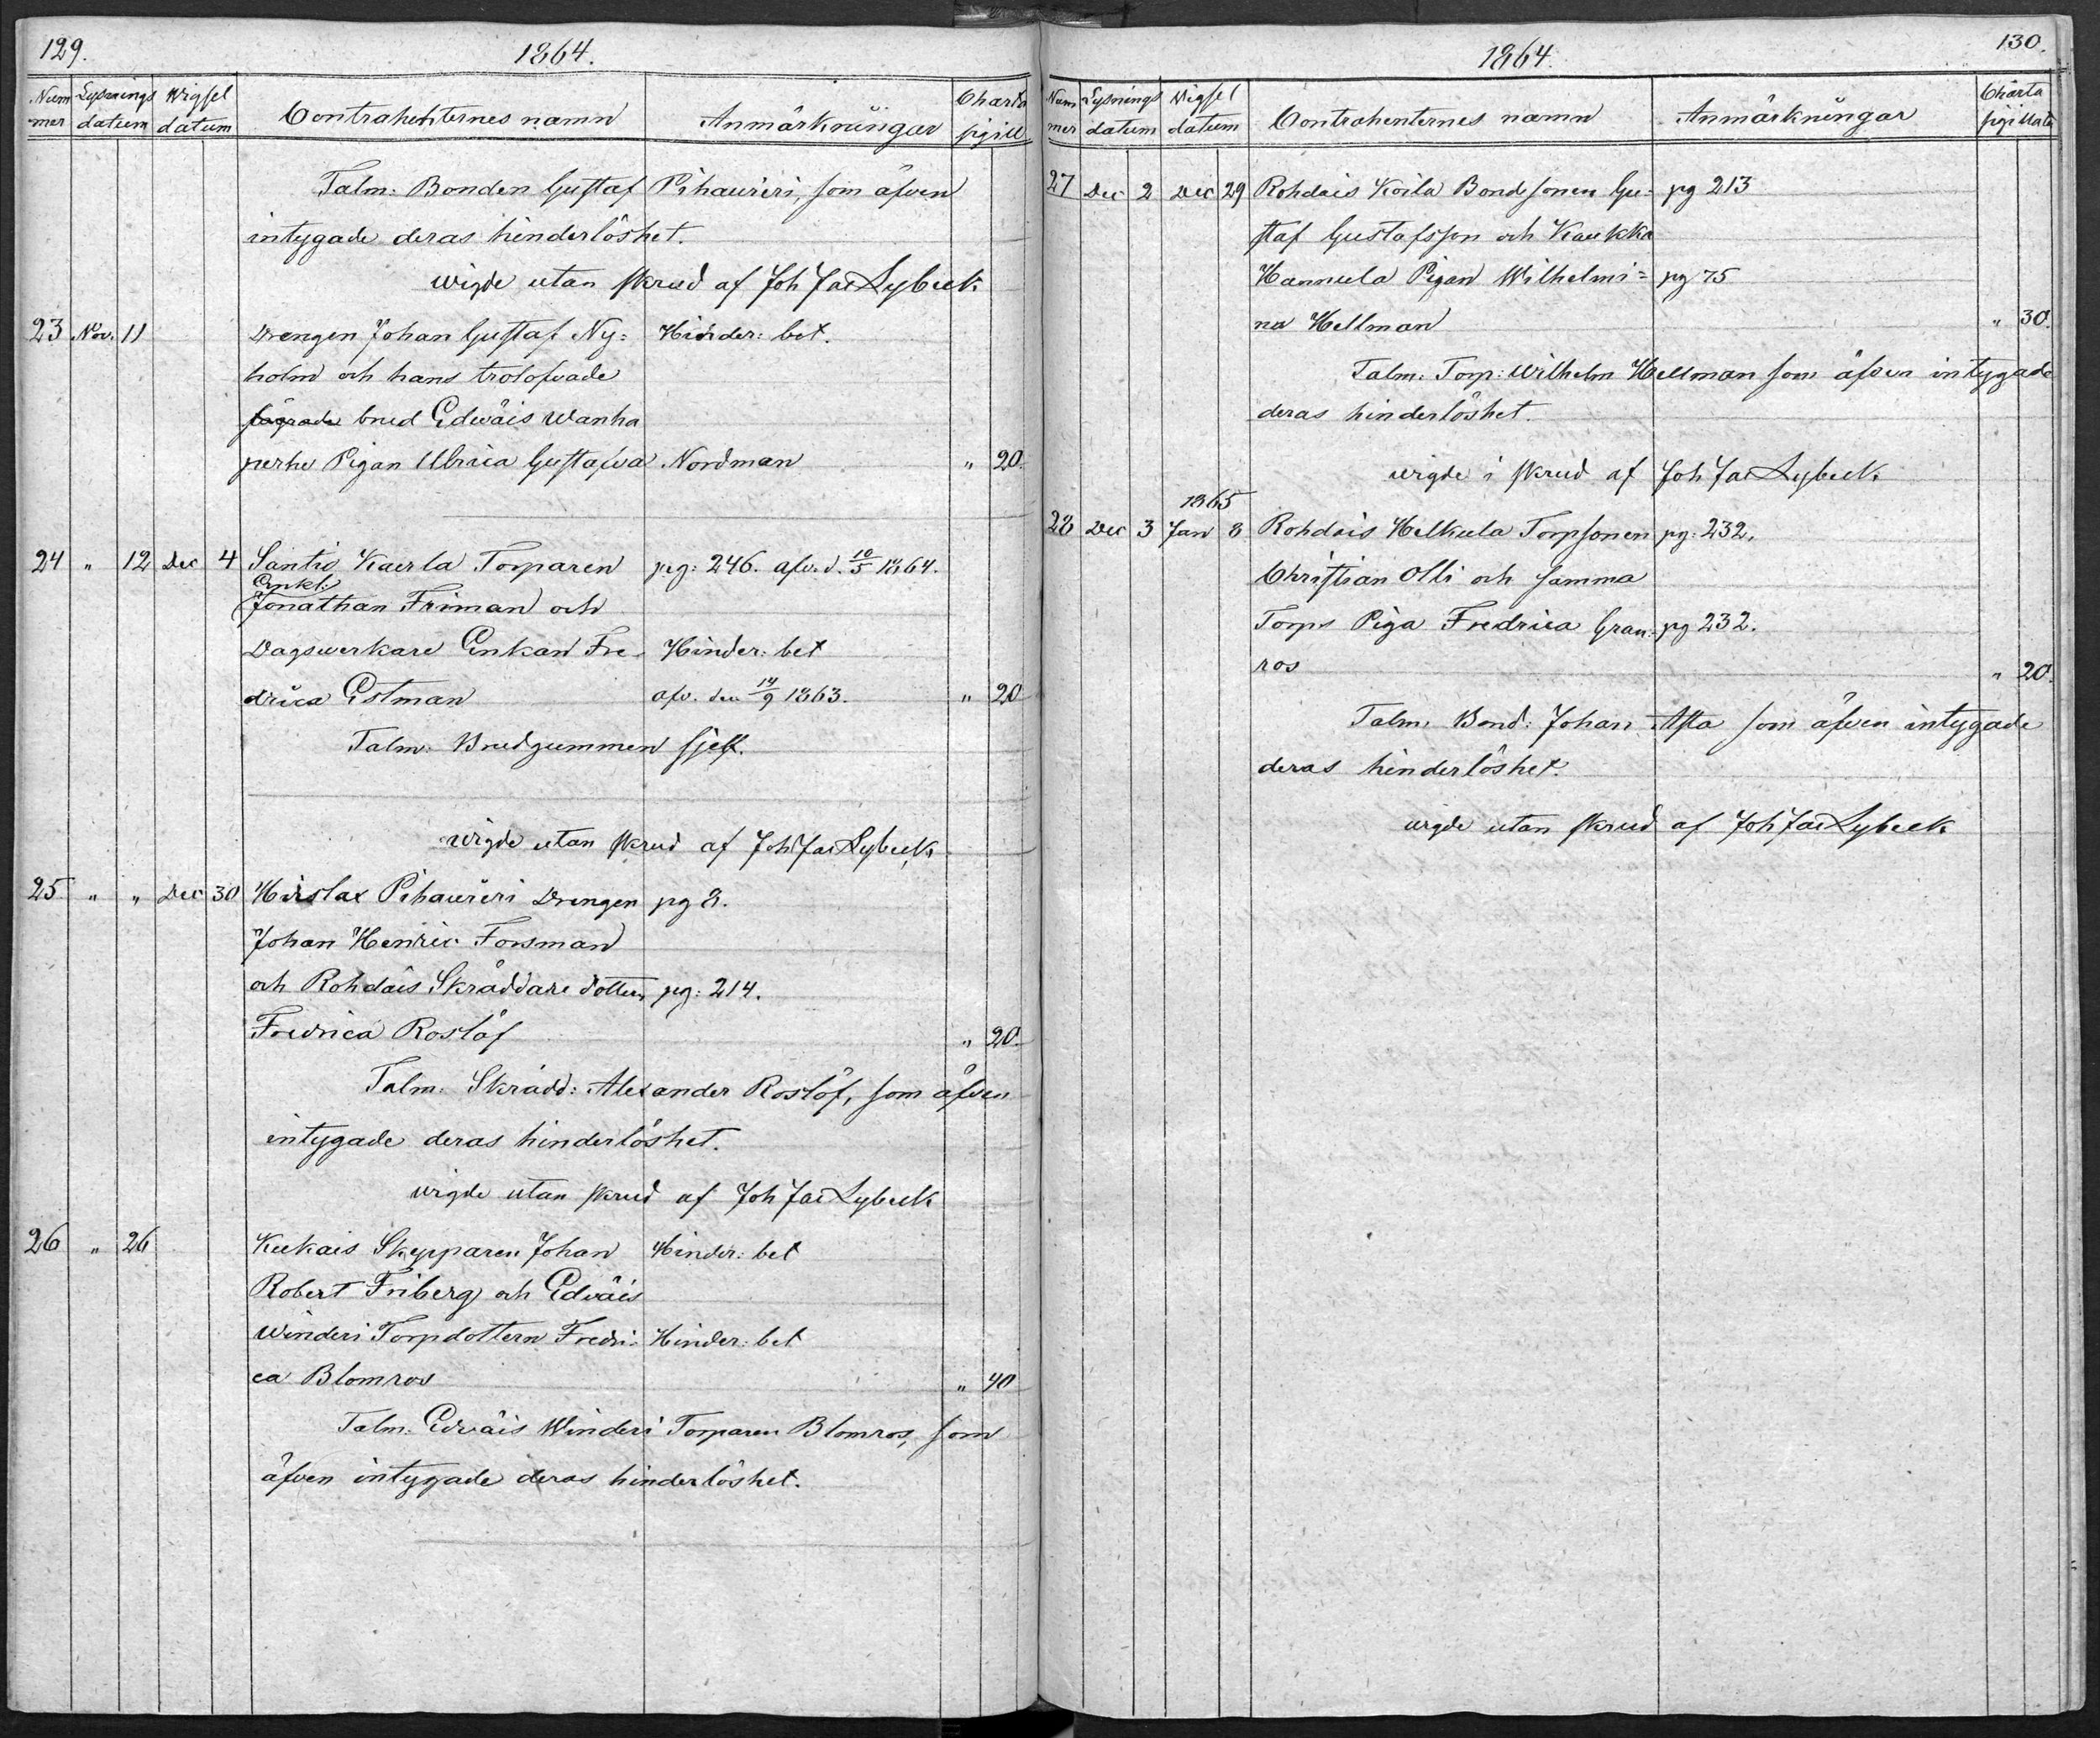 129.
1864.
Nummer Lysnings datum Wigsel datum Contrahenternes namn Anmärkningar Charta sigill.
Talm: Bonden Gustaf Pihaureri, som äfven
intygade deras hinderlöshet.
wigde utan skrud af Joh Jac Lybeck
23 Nov. 11 Drengen Johan Gustaf Ny= Hinder: bet.
holm och hans trolofvade
brud Edwäis Wanha
perhe Pigan Ulrica Gustafva Nordman " 20.
24 " 12 Dec 4 Santio Kaerla Torparen pg: 246. afv. d. 10/5 1864.
Enkl:
Jonathan Friman och
Dagswerkare Enkan Fre Hinder: bet
drica Estman afv. den 14/9 1863. " 20
Talm: Brudgummen sjelf.
wigde utan skrud af Joh Jac Lybeck
25 " " Dec 30 Hirslax Pihaureri Drengen pg 8.
Johan Henric Forsman
och Rohdais Skräddare dottern pg: 214.
Fredrica Roslöf " 20.
Talm: Skrädd: Alexander Roslöf, som äfven
intygade deras hinderlöshet.
wigde utan skrud af Joh Jac Lybeck
26 " 26 Kukais Skepparen Johan Hinder: bet
Robert Friberg och Edväis
Winderi Torpdottern Fredri- Hinder: bet
ca Blomros " 40
Talm: Edväis Winderi Torparen Blomros, som
äfven intygade deras hinderlöshet.
130.
1864.
Nummer Lysnings datum Wigsel datum Contrahenternes namn Anmärkningar Charta sigillata
27 Dec 2 Dec 29 Rohdais Koila Bondsonen Gu- pg 213
staf Gustafsson och Kaukka
Hannula Pigan Wilhelmi= pg 75
na Hellman " 30.
Talm: Torp: Wilhelm Hellman som äfven intygade
deras hinderlöshet.
wigde i skrud af Joh Jac Lybeck
1865
28 Dec 3 Jan 8 Rohdais Helkula Torpsonen pg: 232.
Christian Olli och samma
Torps Piga Fredrica Gran- pg 232.
ros " 20.
Talm: Bond: Johan Asta som äfven intygade
deras hinderlöshet.
wigde utan skrud af Joh Jac Lybeck